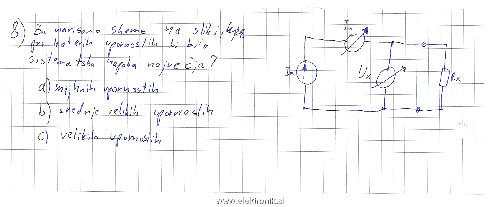 8) Za narisano shemo na sliki
pri katerih upornostih bi bila
sistematska napaka največja?
a) majhnih upornostih
b) srednje velikih upornostih
c) velikih upornostih
Ux
Rx
www.elektronik.si